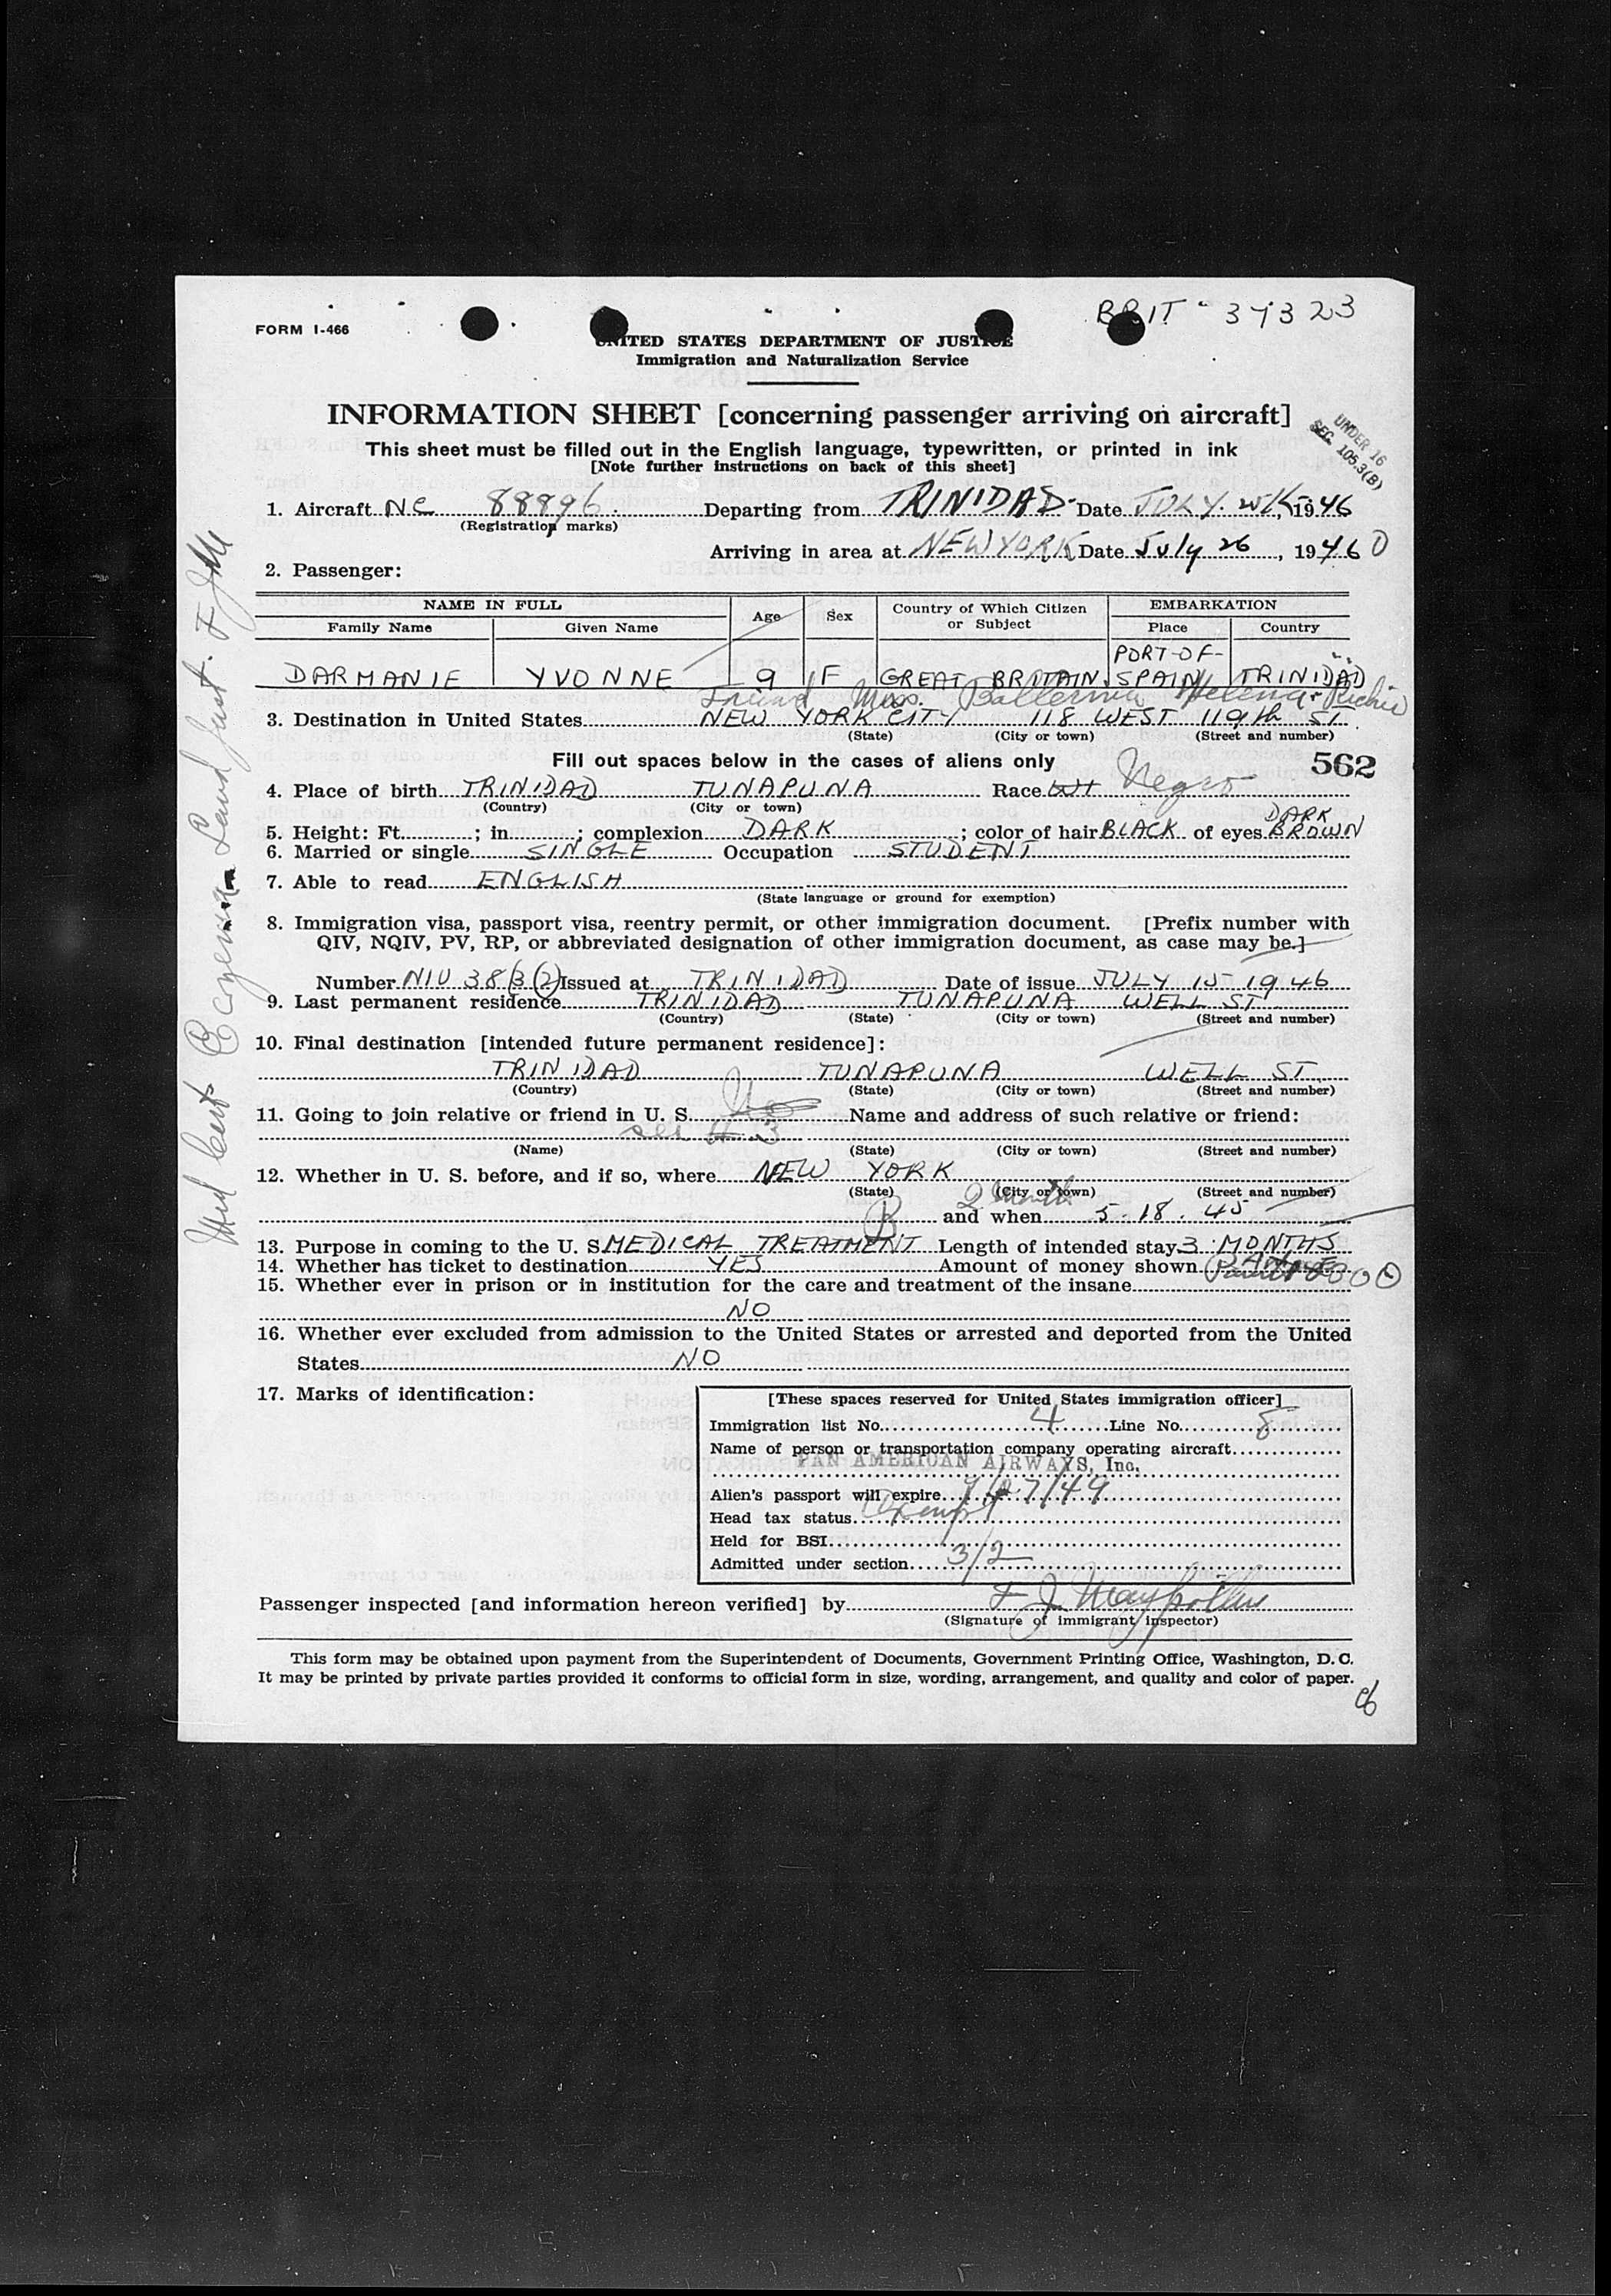 FORM I-466
BRIT - 37323
UNITED STATES DEPARTMENT OF JUSTICE
Immigration and Naturalization Service
INFORMATION SHEET [concerning passenger arriving on aircraft]
UNDER 16
SEC. 105.3(B)
This sheet must be filled out in the English language, typewritten, or printed in ink
[Note further instructions on back of this sheet]
1. Aircraft NC 88896. Departing from TRINIDAD Date JULY , 1946
(Registration marks)
Arriving in area at NEW YORK Date July 26, 1946 0
2. Passenger:
NAME IN FULL Age Sex Country of Which Citizen or Subject EMBARKATION
Family Name Given Name Place Country
DARMANIE YVONNE 9 F GREAT BRITAIN PORT-OF-SPAIN TRINIDAD
Friend Miss. Helena Richie
3. Destination in United States NEW YORK CITY 118 WEST 119th ST.
(State) (City or town) (Street and number)
Fill out spaces below in the cases of aliens only 562
4. Place of birth TRINIDAD TUNAPUNA Race Negro
(Country) (City or town)
DARK
5. Height: Ft. ; in. ; complexion DARK ; color of hair BLACK of eyes BROWN
6. Married or single SINGLE Occupation STUDENT
7. Able to read ENGLISH
(State language or ground for exemption)
8. Immigration visa, passport visa, reentry permit, or other immigration document. [Prefix number with
QIV, NQIV, PV, RP, or abbreviated designation of other immigration document, as case may be.]
Number NIV 38 (3(2) Issued at TRINIDAD Date of issue JULY 15 1946
9. Last permanent residence TRINIDAD TUNAPUNA WELL ST
(Country) (State) (City or town) (Street and number)
10. Final destination [intended future permanent residence]:
TRINIDAD TUNAPUNA WELL ST.
(Country) (State) (City or town) (Street and number)
11. Going to join relative or friend in U. S. Name and address of such relative or friend:
see # 3
(Name) (State) (City or town) (Street and number)
12. Whether in U. S. before, and if so, where NEW YORK
(State) (City or town) (Street and number)
B 2 month
and when 5.18.45
13. Purpose in coming to the U. S. MEDICAL TREATMENT Length of intended stay 3 MONTHS
14. Whether has ticket to destination YES Amount of money shown
15. Whether ever in prison or in institution for the care and treatment of the insane
NO
16. Whether ever excluded from admission to the United States or arrested and deported from the United
States NO
17. Marks of identification:
[These spaces reserved for United States immigration officer]
Immigration list No. 4 Line No. 8
Name of person or transportation company operating aircraft
PAN AMERICAN AIRWAYS, Inc.
Alien's passport will expire 7/27/49
Head tax status Exempt
Held for BSI
Admitted under section 3/2
Passenger inspected [and information hereon verified] by F J
(Signature of immigrant inspector)
This form may be obtained upon payment from the Superintendent of Documents, Government Printing Office, Washington, D. C.
It may be printed by private parties provided it conforms to official form in size, wording, arrangement, and quality and color of paper.
Med Cert Eczema